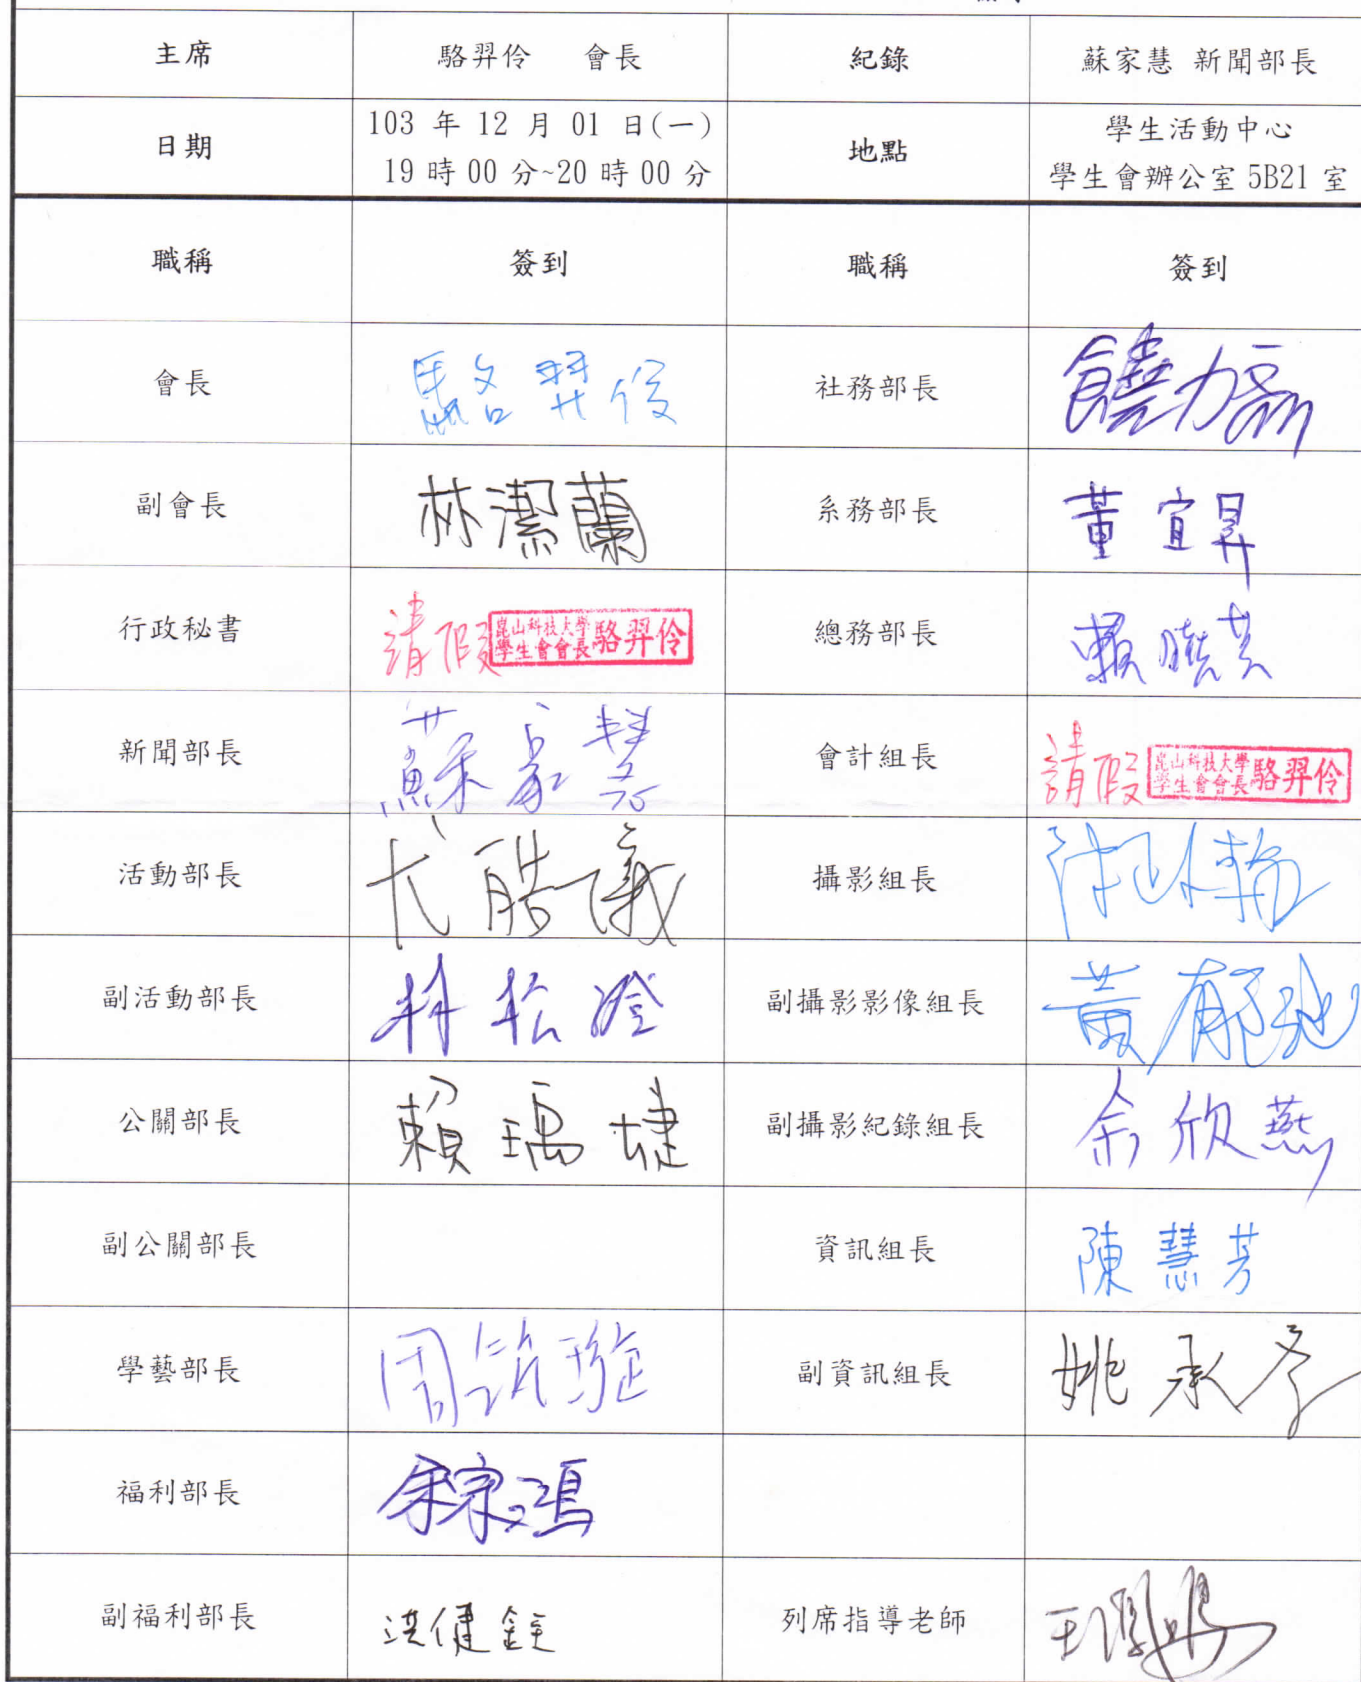 主席 駱羿伶 會長 紀錄 蘇家慧 新聞部長
日期 103 年 12 月 01 日(一) 地點 學生活動中心
19 時 00 分~20 時 00 分 學生會辦公室 5B21 室
職稱 簽到 職稱 簽到
會長 駱羿伶 社務部長
副會長 林潔蘭 系務部長 董宜昇
行政秘書 請假 崑山科技大學 學生會會長 駱羿伶 總務部長 賴
新聞部長 蘇家慧 會計組長 請假 崑山科技大學 學生會會長 駱羿伶
活動部長 攝影組長
副活動部長 林松澄 副攝影影像組長 黃郁
公關部長 賴瑀婕 副攝影紀錄組長 余欣燕
副公關部長 資訊組長 陳慧芳
學藝部長 周筑璇 副資訊組長 姚承
福利部長 余宗鴻
副福利部長 洪健鈺 列席指導老師 王